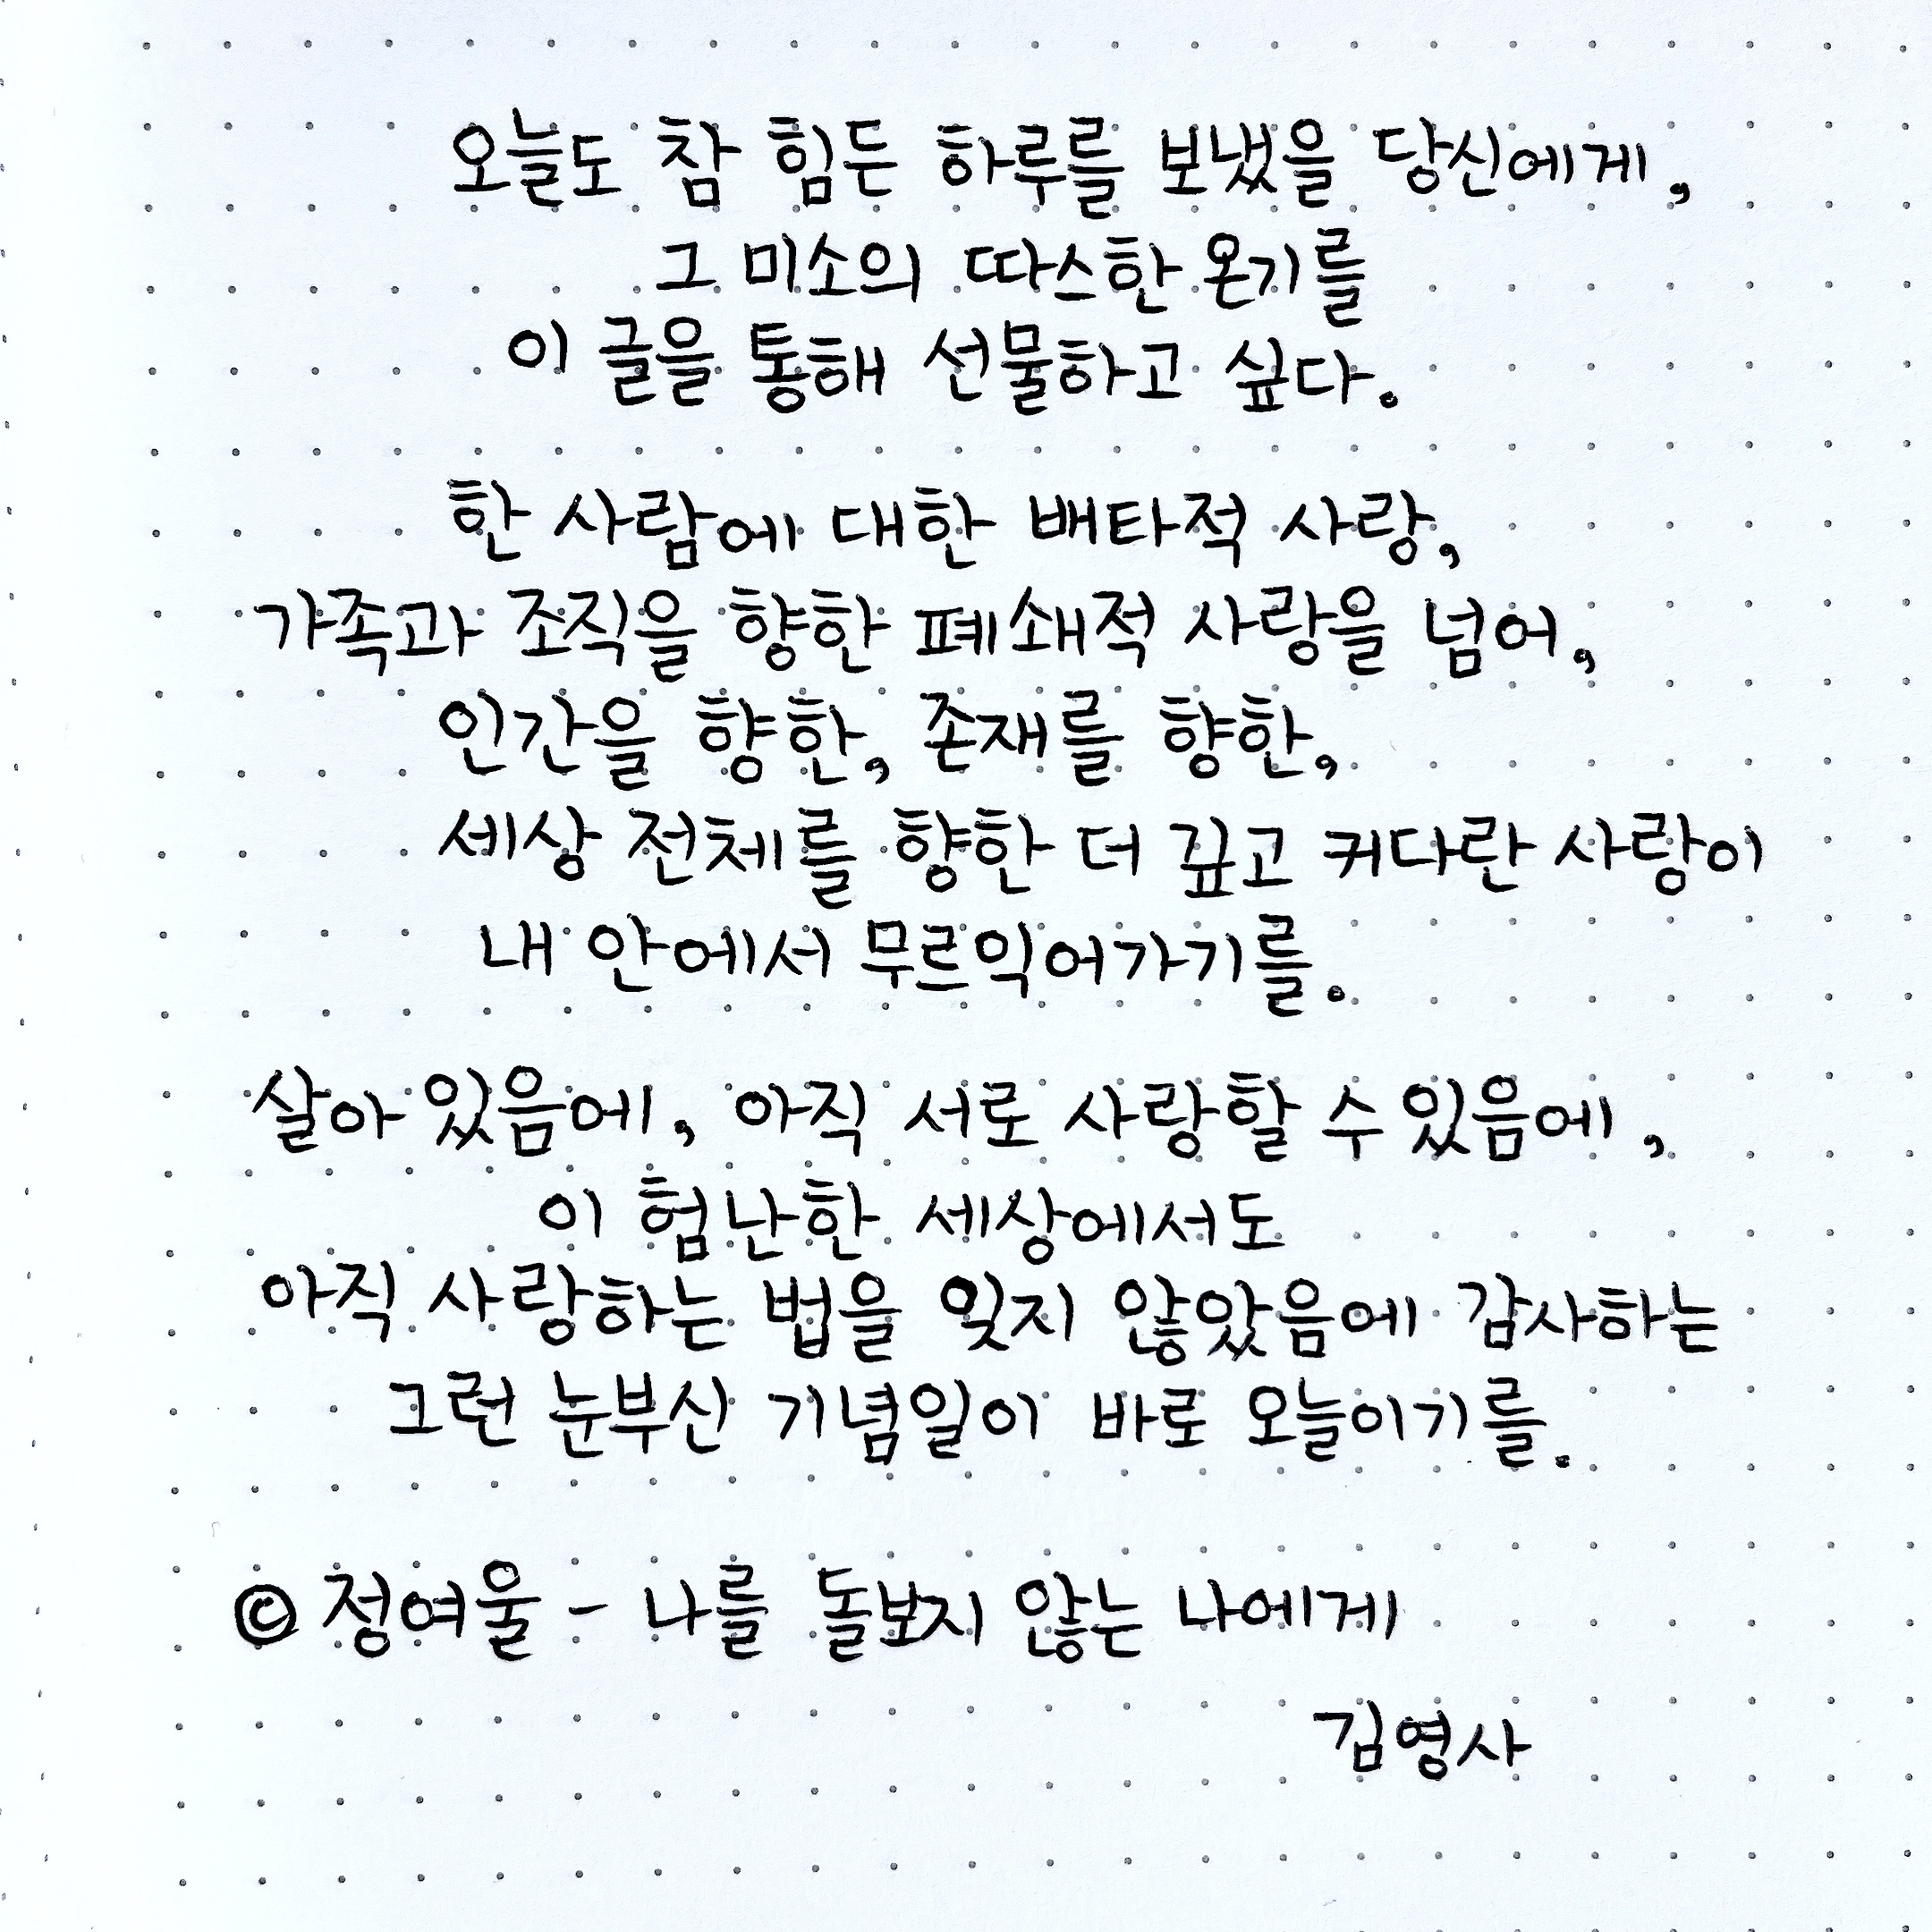 오늘도 참 힘든 하루를 보냈을 당신에게,
그 미소의 따스한 온기를
이 글을 통해 선물하고 싶다.
한 사람에 대한 배타적 사랑,
가족과 조직을 향한 폐쇄적 사랑을 넘어,
인간을 향한, 존재를 향한,
세상 전체를 향한 더 깊고 커다란 사랑이
내 안에서 무르익어가기를.
살아 있음에, 아직 서로 사랑할 수 있음에,
이 험난한 세상에서도
아직 사랑하는 법을 잊지 않았음에 감사하는
그런 눈부신 기념일이 바로 오늘이기를.
© 정여울 - 나를 돌보지 않는 나에게
김영사